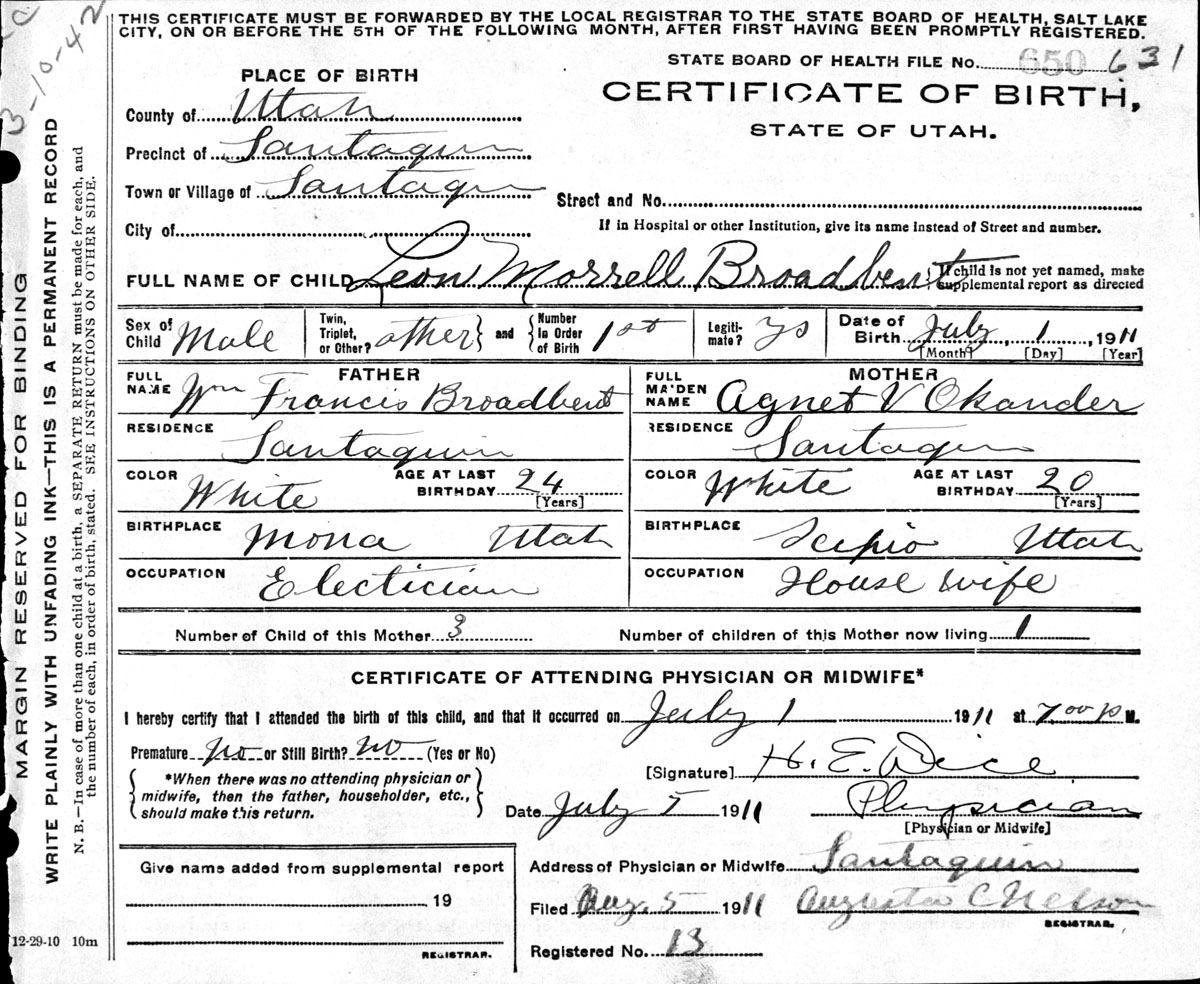 THIS CERTIFICATE MUST BE FORWARDED BY THE LOCAL REGISTRAR TO THE STATE BOARD OF HEALTH, SALT LAKE
CITY, ON OR BEFORE THE 5TH OF THE FOLLOWING MONTH, AFTER FIRST HAVING BEEN PROMPTLY REGISTERED.
STATE BOARD OF HEALTH FILE No. 650 631
CERTIFICATE OF BIRTH,
STATE OF UTAH.
PLACE OF BIRTH
County of Utah
Precinct of Santaquin
Town or Village of Santaquin
City of
Street and No.
If in Hospital or other Institution, give its name instead of Street and number.
FULL NAME OF CHILD Leon Morrell Broadbent If child is not yet named, make
supplemental report as directed
Sex of Child Male Twin, Triplet, or Other? other and Number in Order of Birth 1st Legitimate? ys Date of Birth July 1 1911
[Month] [Day] [Year]
FATHER
FULL NAME Wm Francis Broadbent
RESIDENCE Santaquin
COLOR White AGE AT LAST BIRTHDAY 24 [Years]
BIRTHPLACE Mona Utah
OCCUPATION Electician
MOTHER
FULL MAIDEN NAME Agnet V Okander
RESIDENCE Santaquin
COLOR White AGE AT LAST BIRTHDAY 20 [Years]
BIRTHPLACE Scipio Utah
OCCUPATION House wife
Number of Child of this Mother 3 Number of children of this Mother now living 1
CERTIFICATE OF ATTENDING PHYSICIAN OR MIDWIFE*
I hereby certify that I attended the birth of this child, and that it occurred on July 1 1911 at 7 00 p M.
Premature no or Still Birth? no (Yes or No)
*When there was no attending physician or
midwife, then the father, householder, etc.,
should make this return.
[Signature] H. E. Dice
Date July 5 1911 Physician
[Physician or Midwife]
Address of Physician or Midwife Santaquin
Filed Aug. 5 1911 Augusta C Nelson
REGISTRAR.
Registered No. 13
Give name added from supplemental report
19
REGISTRAR.
12-29-10 10m
MARGIN RESERVED FOR BINDING
WRITE PLAINLY WITH UNFADING INK—THIS IS A PERMANENT RECORD
N. B.—In case of more than one child at a birth, a SEPARATE RETURN must be made for each, and
the number of each, in order of birth, stated. SEE INSTRUCTIONS ON OTHER SIDE.